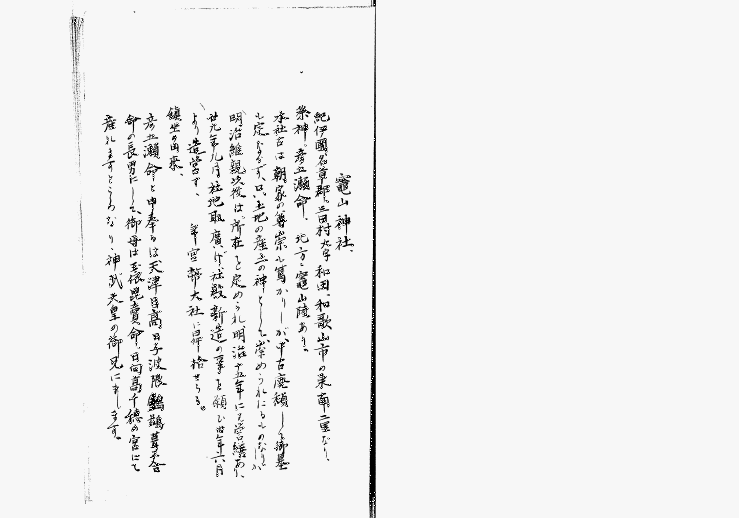 竈山神社、
紀伊國名草郡三田村大字和田、和歌山市の東南二里なり、
祭神。彦五瀬命、 北方に竈山陵あり。
本社古は朝家の尊崇も篤かりしが、中古廃頽して御墓
も定かならず、只土地の産土の神として崇められたるものなりしが、
明治維新次後は、所在を定められ、明治十五年には営繕あり、
廿九年九月社地取廣げ社殿新造の事を願ひ卅年六月
より造営す、 官幣大社に昇格せらる。
鎮坐の由来、
彦五瀬命と申奉るは天津日高日子波限鵜鵜葺不合
命の長男にして、御母は玉依毘賣命、日向高千穂の宮にて
産れますところなり、神武天皇の御兄にまします。